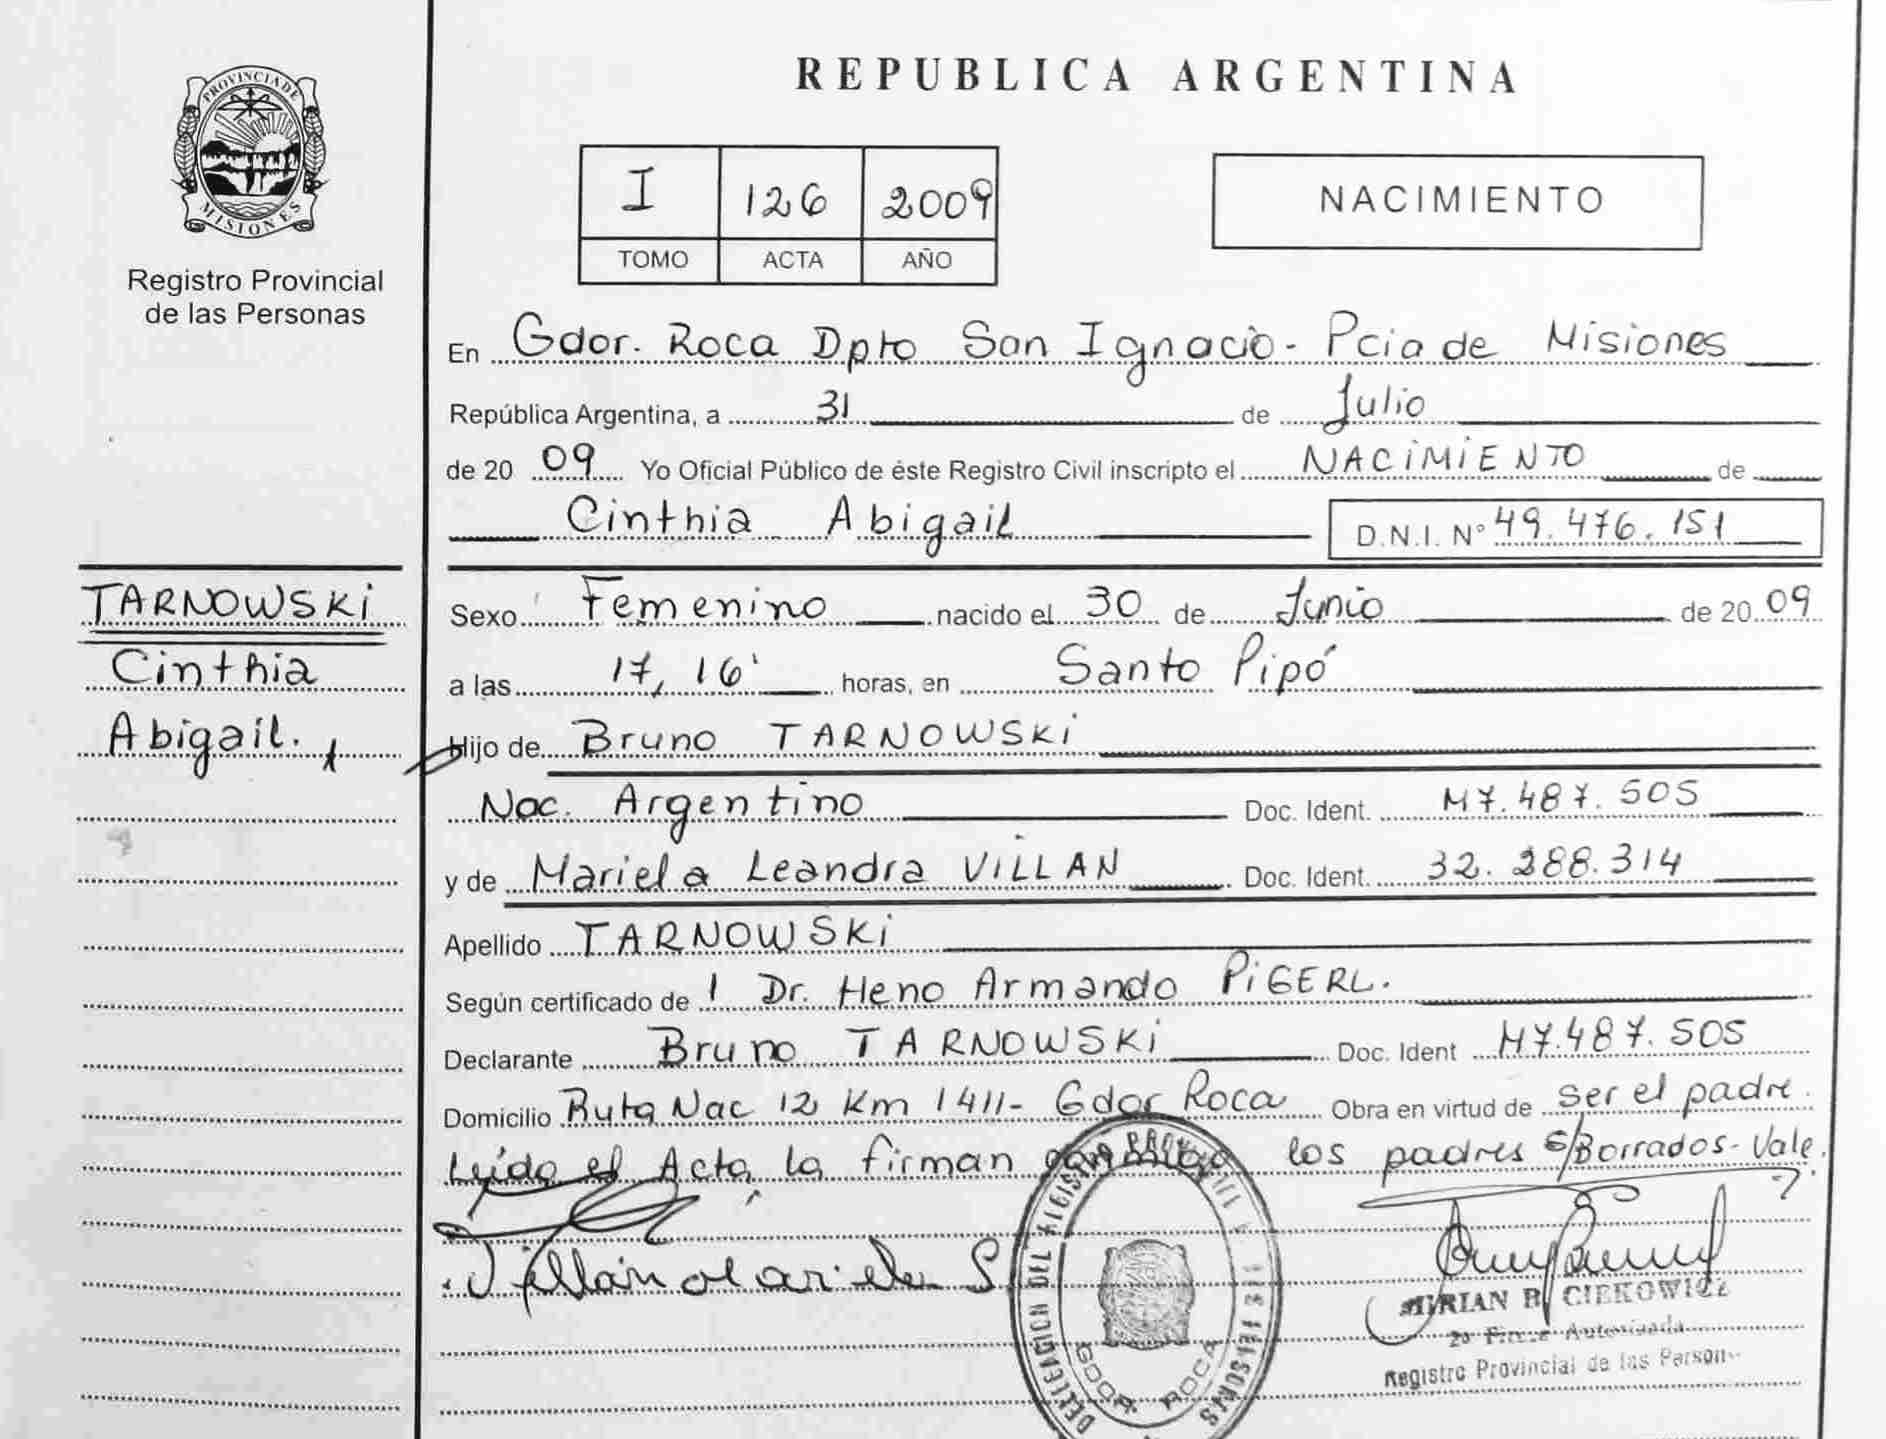 PROVINCIA DE
MISIONES
Registro Provincial
de las Personas
TARNOWSKi
Cinthia
Abigail.
REPUBLICA ARGENTINA
I 126 2009
TOMO ACTA AÑO
NACIMIENTO
En Gdor. Roca Dpto San Ignacio - Pcia de Misiones
República Argentina, a 31 de Julio
de 20 09 Yo Oficial Público de éste Registro Civil inscripto el NACiMiENTO de
Cinthia Abigail D.N.I. N° 49.476.151
Sexo Femenino nacido el 30 de Junio de 20 09
a las 17,16' horas, en Santo Pipó
Hijo de Bruno TARNOWSKi
Nac. Argentino Doc. Ident. M7.487.505
y de Mariela Leandra ViLLAN Doc. Ident. 32.288.314
Apellido TARNOWSKi
Según certificado de 1 Dr. Heno Armando PiGERL.
Declarante Bruno TARNOWSKi Doc. Ident M7.487.505
Domicilio Ruta Nac 12 Km 1411- Gdor Roca Obra en virtud de ser el padre.
Leída el Acta la firman conmigo los padres s/Borrados-Vale.
Villan Mariela
DELEGACION DEL REGISTRO PROVINCIAL DE LAS PERSONAS
GDOR. ROCA
MIRIAN B. CIEKOWICZ
2a Firma Autorizada
Registro Provincial de las Person